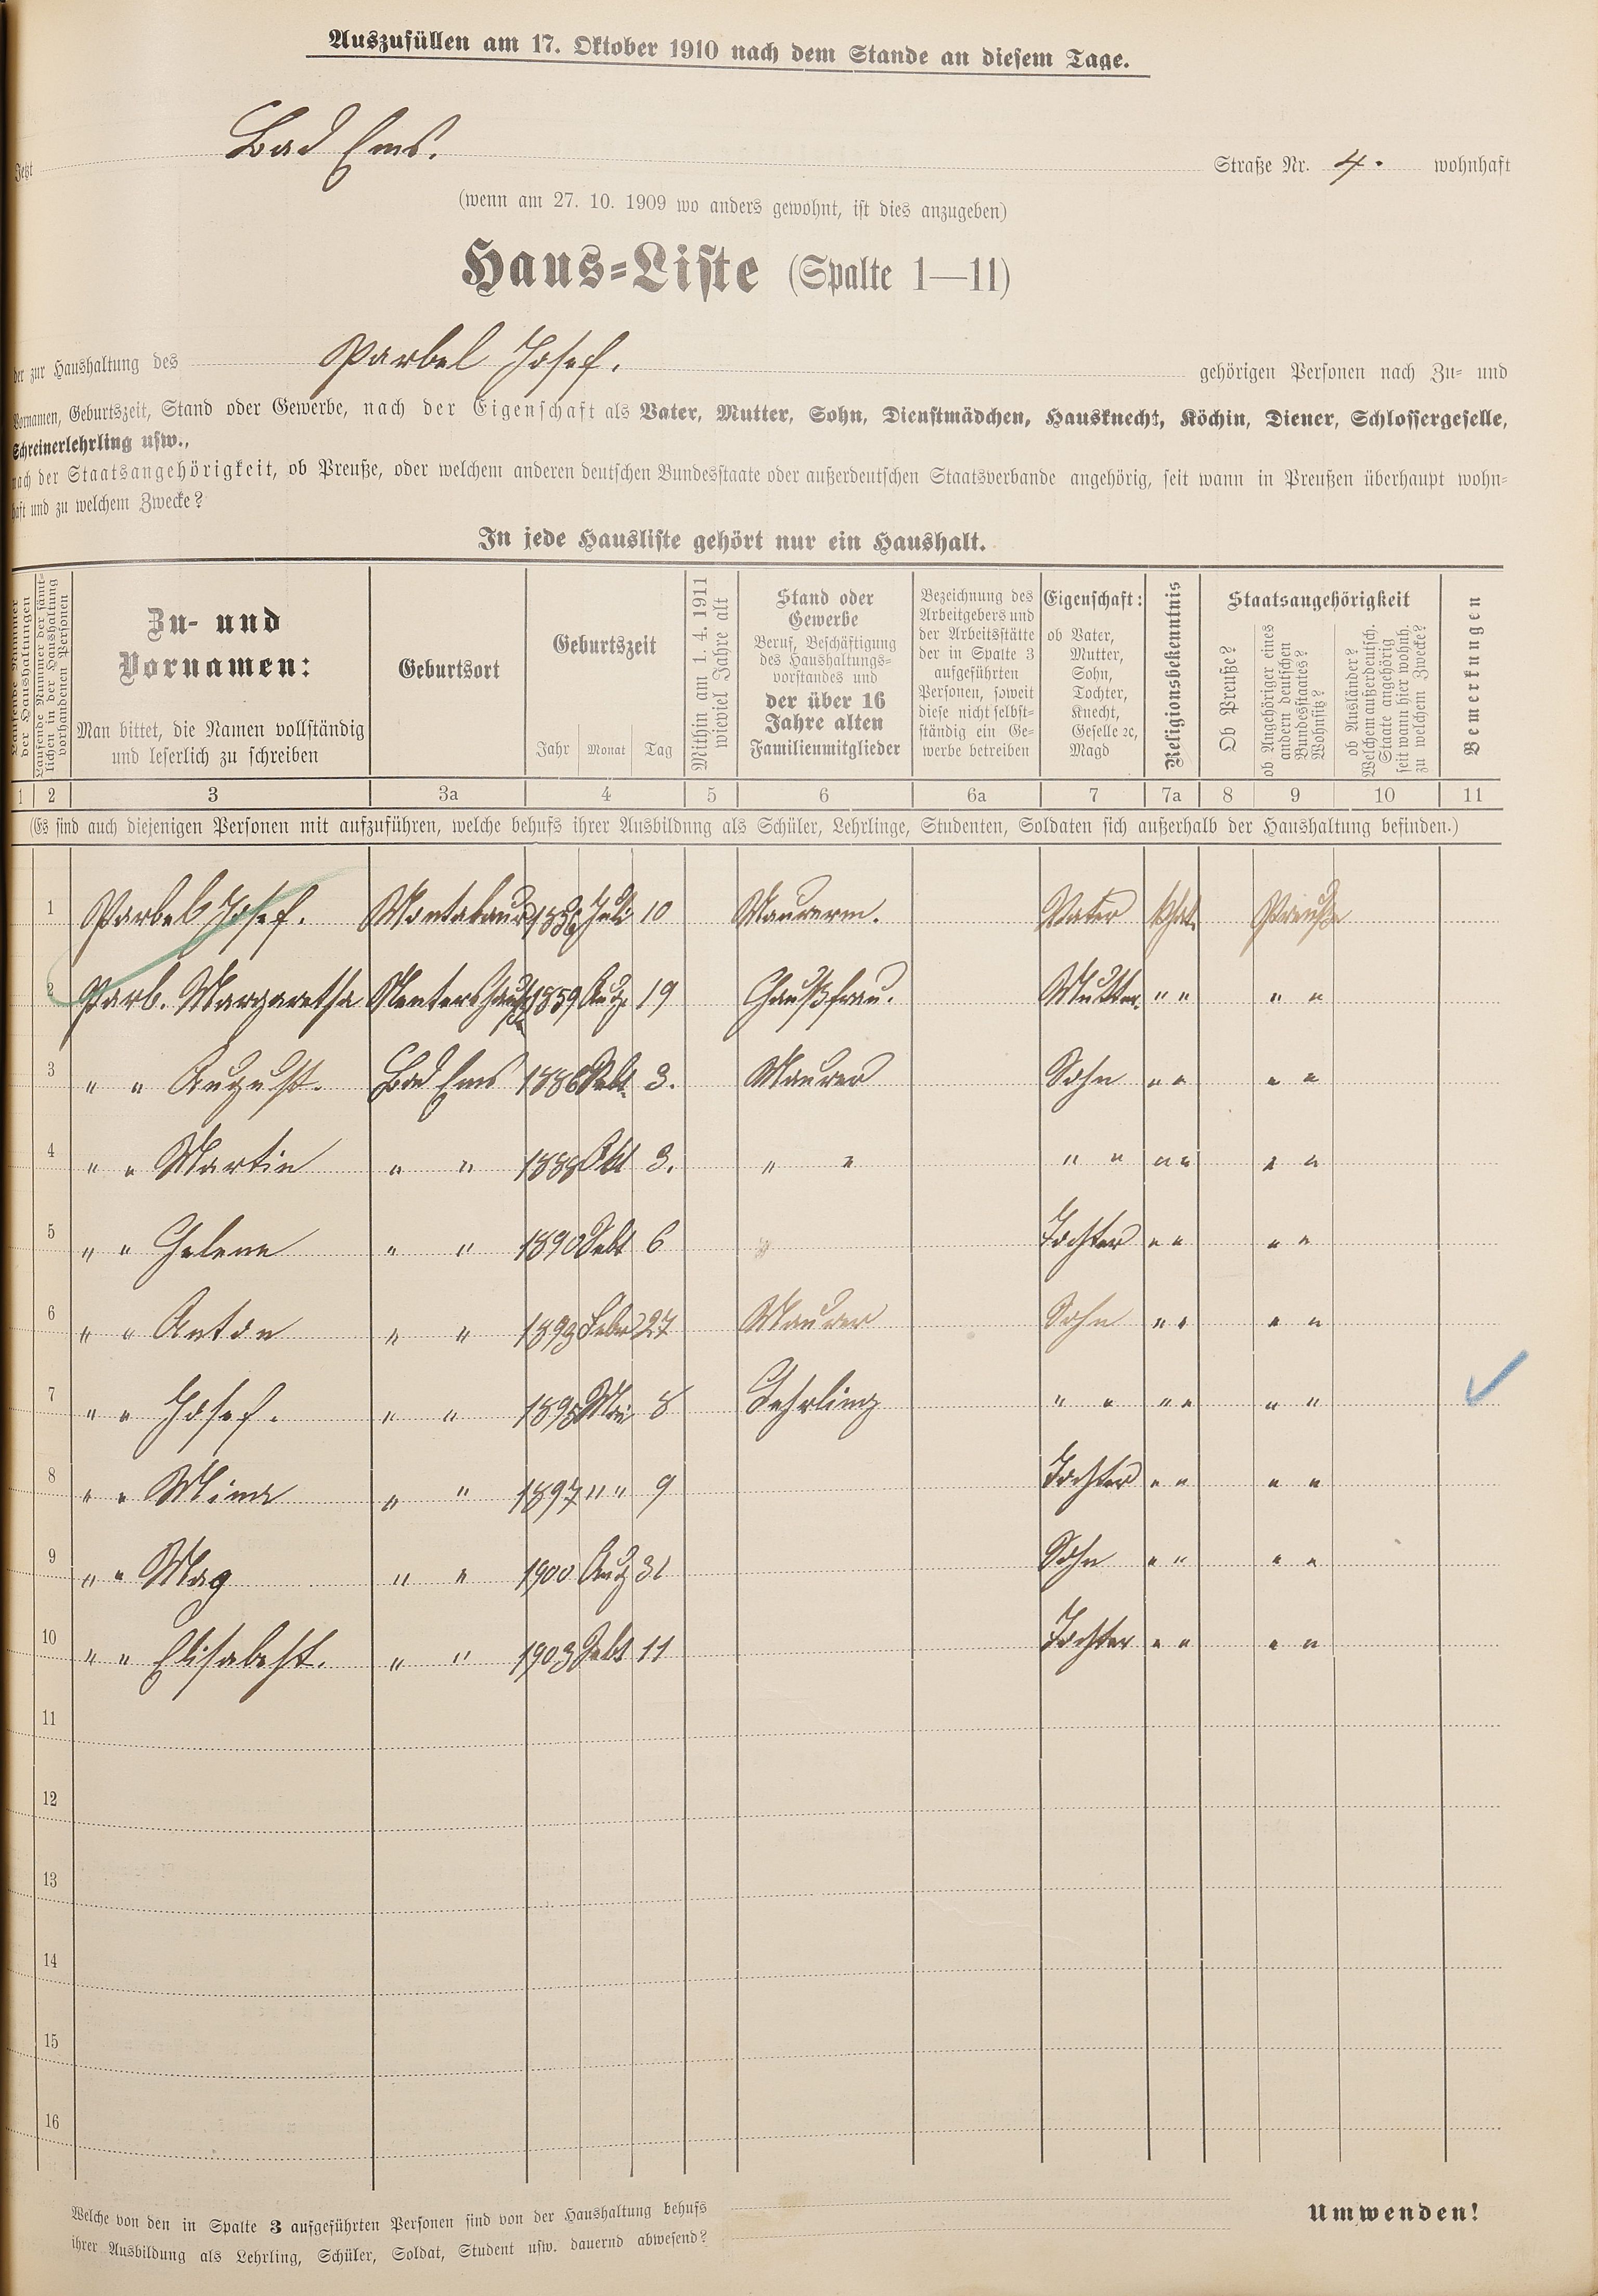 Auszufüllen am 17. Oktober 1910 nach dem Stande an diesem Tage.
Jetzt Bad Ems. Straße Nr. 4. wohnhaft
(wenn am 27. 10. 1909 wo anders gewohnt, ist dies anzugeben)
Haus=Liste (Spalte 1—11)
der zur Haushaltung des Parbel Josef. gehörigen Personen nach Zu= und
Vornamen, Geburtszeit, Stand oder Gewerbe, nach der Eigenschaft als Vater, Mutter, Sohn, Dienstmädchen, Hausknecht, Köchin, Diener, Schlossergeselle,
Schreinerlehrling usw.,
nach der Staatsangehörigkeit, ob Preuße, oder welchem anderen deutschen Bundesstaate oder außerdeutschen Staatsverbande angehörig, seit wann in Preußen überhaupt wohn=
haft und zu welchem Zwecke?
In jede Hausliste gehört nur ein Haushalt.
Laufende Nummer
der Haushaltungen
Laufende Nummer der sämt=
lichen in der Haushaltung
vorhandenen Personen
Zu- und
Vornamen:
Man bittet, die Namen vollständig
und leserlich zu schreiben
Geburtsort
Geburtszeit
Jahr Monat Tag
Mithin am 1. 4. 1911
wieviel Jahre alt
Stand oder
Gewerbe
Beruf, Beschäftigung
des Haushaltungs=
vorstandes und
der über 16
Jahre alten
Familienmitglieder
Bezeichnung des
Arbeitgebers und
der Arbeitsstätte
der in Spalte 3
aufgeführten
Personen, soweit
diese nicht selbst=
ständig ein Ge=
werbe betreiben
Eigenschaft:
ob Vater,
Mutter,
Sohn,
Tochter,
Knecht,
Geselle ꝛc,
Magd
Religionsbekenntnis
Staatsangehörigkeit
Ob Preuße?
ob Angehöriger eines
andern deutschen
Bundesstaates?
Wohnsitz?
ob Ausländer?
Welchem außerdeutsch.
Staate angehörig
seit wann hier wohnh.
zu welchem Zwecke?
Bemerkungen
1 2 3 3a 4 5 6 6a 7 7a 8 9 10 11
(Es sind auch diejenigen Personen mit aufzuführen, welche behufs ihrer Ausbildung als Schüler, Lehrlinge, Studenten, Soldaten sich außerhalb der Haushaltung befinden.)
1 Parbel Josef. Montabaur Juli 10 Maurerm. Vater Kath. Preuße
2 Parb. Margaretha 1859 Aug. 19 Haußfrau. Mutter. " " " "
3 " " August. Bad Ems 1886 Sebt. 3. Maurer Sohn " " " "
4 " " Martin " " 1888 Okt 3. " " " " " " " "
5 " " Helene " " 1890 Sebt 6 Tochter " " " "
6 " " Anton " " 1893 Febr 27 Maurer Sohn " " " "
7 " " Josef. " " 1895 Mai 8 Lehrling " " " " " "
8 " " Mina " " 1897 " " 9 Tochter " " " "
9 " " Max " " 1900 Aug 31 Sohn " " " "
10 " " Elisabeht. " " 1903 Sebt 11 Tochter " " " "
11
12
13
14
15
16
Welche von den in Spalte 3 aufgeführten Personen sind von der Haushaltung behufs
ihrer Ausbildung als Lehrling, Schüler, Soldat, Student usw. dauernd abwesend?
Umwenden!